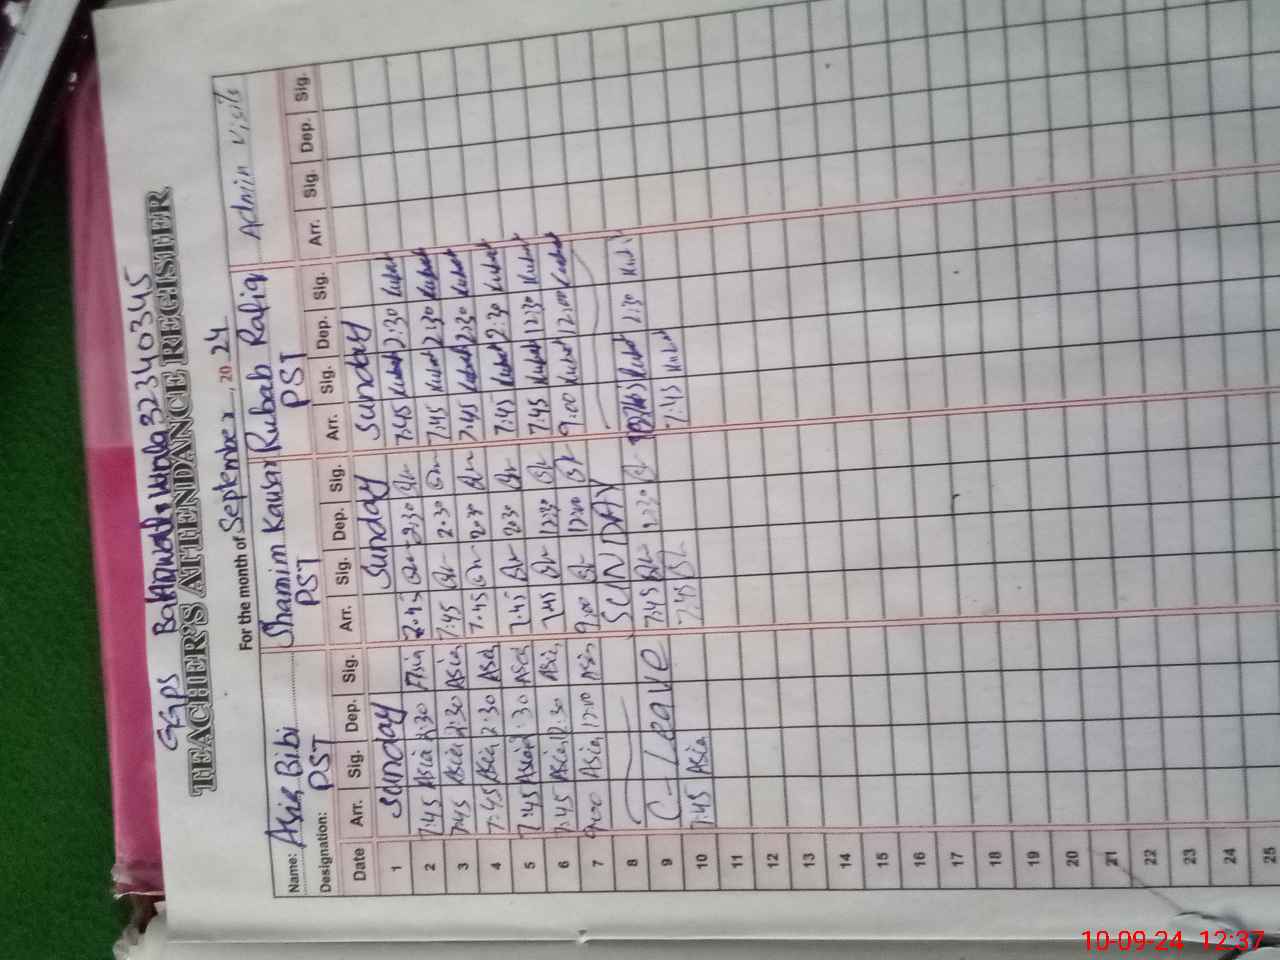 GGPS 32340345
TEACHER'S ATTENDANCE REGISTER
For the month of September, 20 24
Name: Asia Bibi Shamim Kausar Rubab Rafiq Admin Visits
Designation: PST PST PST
Date Arr. Sig. Dep. Sig. Arr. Sig. Dep. Sig. Arr. Sig. Dep. Sig. Arr. Sig. Dep. Sig.
1 Sunday Sunday Sunday
2 7:45 Asia 2:30 Asia 7:45 2:30 7:45 Rubab 2:30 Rubab
3 7:45 Asia 2:30 Asia 7:45 2:30 7:45 Rubab 2:30 Rubab
4 7:45 Asia 2:30 Asia 7:45 2:30 7:45 Rubab 2:30 Rubab
5 7:45 Asia 2:30 Asia 7:45 2:30 7:45 Rubab 2:30 Rubab
6 7:45 Asia 12:30 Asia 7:45 12:30 7:45 Rubab 12:30 Rubab
7 9:00 Asia 12:00 Asia 9:00 12:00 9:00 Rubab 12:00 Rubab
8 SUNDAY
9 C-Leave 7:45 2:30 7:45 Rubab 2:30 Rubab
10 7:45 Asia 7:45 7:45 Rubab
11
12
13
14
15
16
17
18
19
20
21
22
23
24
25
10-09-24 12:37